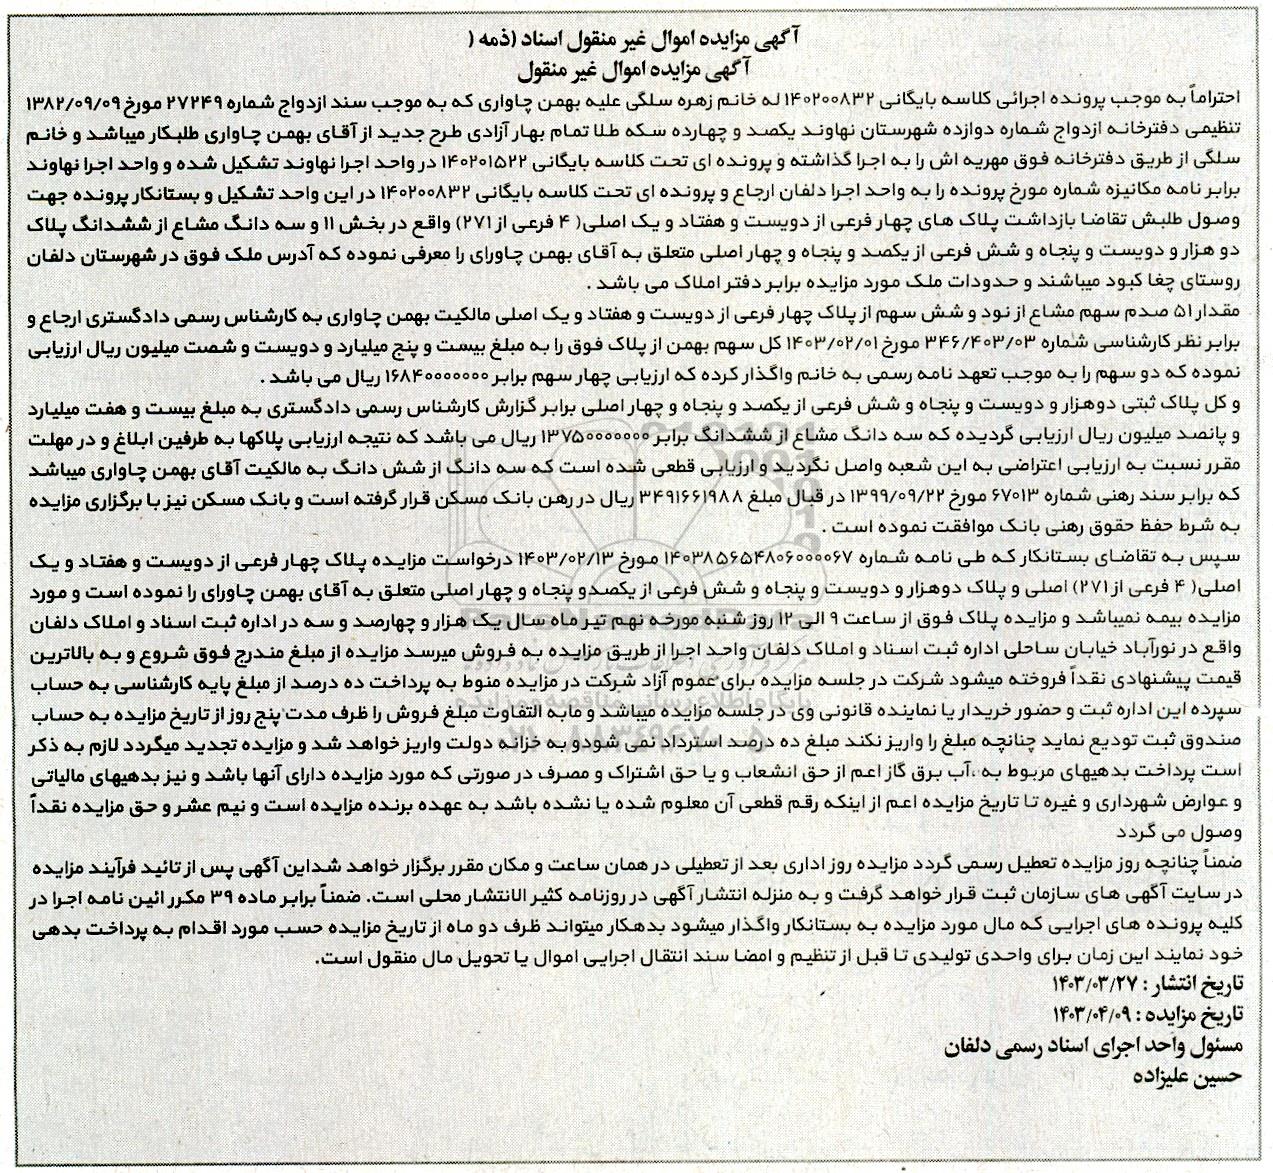 آگهی مزایده اموال غیر منقول اسناد (ذمه (
آگهی مزایده اموال غیر منقول
احتراماً به موجب پرونده اجرائی کلاسه بایگانی ۱۴۰۲۰۰۸۳۲ له خانم زهره سلگی علیه بهمن چاواری که به موجب سند ازدواج شماره ۲۷۲۴۹ مورخ ۱۳۸۲/۰۹/۰۹
تنظیمی دفترخانه ازدواج شماره دوازده شهرستان نهاوند یکصد و چهارده سکه طلا تمام بهار آزادی طرح جدید از آقای بهمن چاواری طلبکار میباشد و خانم
سلگی از طریق دفترخانه فوق مهریه اش را به اجرا گذاشته و پرونده ای تحت کلاسه بایگانی ۱۴۰۲۰۱۵۲۲ در واحد اجرا نهاوند تشکیل شده و واحد اجرا نهاوند
برابر نامه مکانیزه شماره مورخ پرونده را به واحد اجرا دلفان ارجاع و پرونده ای تحت کلاسه بایگانی ۱۴۰۲۰۰۸۳۲ در این واحد تشکیل و بستانکار پرونده جهت
وصول طلبش تقاضا بازداشت پلاک های چهار فرعی از دویست و هفتاد و یک اصلی( ۴ فرعی از ۲۷۱) واقع در بخش ۱۱ و سه دانگ مشاع از ششدانگ پلاک
دو هزار و دویست و پنجاه و شش فرعی از یکصد و پنجاه و چهار اصلی متعلق به آقای بهمن چاورای را معرفی نموده که آدرس ملک فوق در شهرستان دلفان
روستای چغا کبود میباشند و حدودات ملک مورد مزایده برابر دفتر املاک می باشد .
مقدار ۵۱ صدم سهم مشاع از نود و شش سهم از پلاک چهار فرعی از دویست و هفتاد و یک اصلی مالکیت بهمن چاواری به کارشناس رسمی دادگستری ارجاع و
برابر نظر کارشناسی شماره ۳۴۶/۴۰۳/۰۳ مورخ ۱۴۰۳/۰۲/۰۱ کل سهم بهمن از پلاک فوق را به مبلغ بیست و پنج میلیارد و دویست و شصت میلیون ریال ارزیابی
نموده که دو سهم را به موجب تعهد نامه رسمی به خانم واگذار کرده که ارزیابی چهار سهم برابر ۱۶۸۴۰۰۰۰۰۰۰ ریال می باشد .
و کل پلاک ثبتی دوهزار و دویست و پنجاه و شش فرعی از یکصد و پنجاه و چهار اصلی برابر گزارش کارشناس رسمی دادگستری به مبلغ بیست و هفت میلیارد
و پانصد میلیون ریال ارزیابی گردیده که سه دانگ مشاع از ششدانگ برابر ۱۳۷۵۰۰۰۰۰۰۰ ریال می باشد که نتیجه ارزیابی پلاکها به طرفین ابلاغ و در مهلت
مقرر نسبت به ارزیابی اعتراضی به این شعبه واصل نگردید و ارزیابی قطعی شده است که سه دانگ از شش دانگ به مالکیت آقای بهمن چاواری میباشد
که برابر سند رهنی شماره ۶۷۰۱۳ مورخ ۱۳۹۹/۰۹/۲۲ در قبال مبلغ ۳۴۹۱۶۶۱۹۸۸ ریال در رهن بانک مسکن قرار گرفته است و بانک مسکن نیز با برگزاری مزایده
به شرط حفظ حقوق رهنی بانک موافقت نموده است .
سپس به تقاضای بستانکار که طی نامه شماره ۱۴۰۳۸۵۶۵۴۸۰۶۰۰۰۰۶۷ مورخ ۱۴۰۳/۰۲/۱۳ درخواست مزایده پلاک چهار فرعی از دویست و هفتاد و یک
اصلی( ۴ فرعی از ۲۷۱) اصلی و پلاک دوهزار و دویست و پنجاه و شش فرعی از یکصدو پنجاه و چهار اصلی متعلق به آقای بهمن چاورای را نموده است و مورد
مزایده بیمه نمیباشد و مزایده پلاک فوق از ساعت ۹ الی ۱۲ روز شنبه مورخه نهم تیر ماه سال یک هزار و چهارصد و سه در اداره ثبت اسناد و املاک دلفان
واقع در نورآباد خیابان ساحلی اداره ثبت اسناد و املاک دلفان واحد اجرا از طریق مزایده به فروش میرسد مزایده از مبلغ مندرج فوق شروع و به بالاترین
قیمت پیشنهادی نقداً فروخته میشود شرکت در جلسه مزایده برای عموم آزاد شرکت در مزایده منوط به پرداخت ده درصد از مبلغ پایه کارشناسی به حساب
سپرده این اداره ثبت و حضور خریدار یا نماینده قانونی وی در جلسه مزایده میباشد و مابه التفاوت مبلغ فروش را ظرف مدت پنج روز از تاریخ مزایده به حساب
صندوق ثبت تودیع نماید چنانچه مبلغ را واریز نکند مبلغ ده درصد استرداد نمی شودو به خزانه دولت واریز خواهد شد و مزایده تجدید میگردد لازم به ذکر
است پرداخت بدهیهای مربوط به ،آب برق گاز اعم از حق انشعاب و یا حق اشتراک و مصرف در صورتی که مورد مزایده دارای آنها باشد و نیز بدهیهای مالیاتی
و عوارض شهرداری و غیره تا تاریخ مزایده اعم از اینکه رقم قطعی آن معلوم شده یا نشده باشد به عهده برنده مزایده است و نیم عشر و حق مزایده نقداً
وصول می گردد
ضمناً چنانچه روز مزایده تعطیل رسمی گردد مزایده روز اداری بعد از تعطیلی در همان ساعت و مکان مقرر برگزار خواهد شداین آگهی پس از تائید فرآیند مزایده
در سایت آگهی های سازمان ثبت قرار خواهد گرفت و به منزله انتشار آگهی در روزنامه کثیر الانتشار محلی است. ضمناً برابر ماده ۳۹ مکرر ائین نامه اجرا در
کلیه پرونده های اجرایی که مال مورد مزایده به بستانکار واگذار میشود بدهکار میتواند ظرف دو ماه از تاریخ مزایده حسب مورد اقدام به پرداخت بدهی
خود نمایند این زمان برای واحدی تولیدی تا قبل از تنظیم و امضا سند انتقال اجرایی اموال یا تحویل مال منقول است.
تاریخ انتشار : ۱۴۰۳/۰۳/۲۷
تاریخ مزایده : ۱۴۰۳/۰۴/۰۹
مسئول واحد اجرای اسناد رسمی دلفان
حسین علیزاده